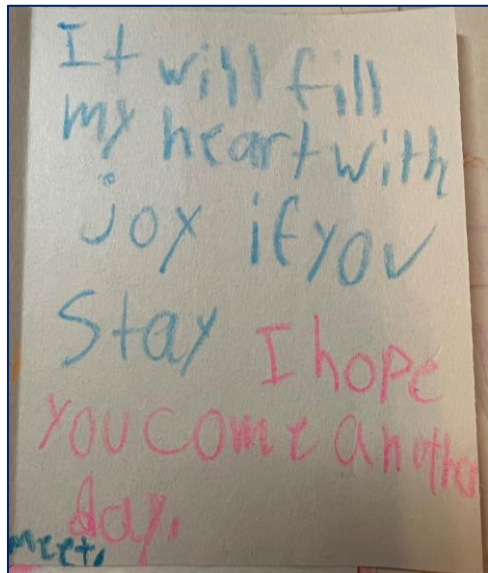 It will fill
my heart with
joy if you
Stay I hope
you come another
day.
meet.